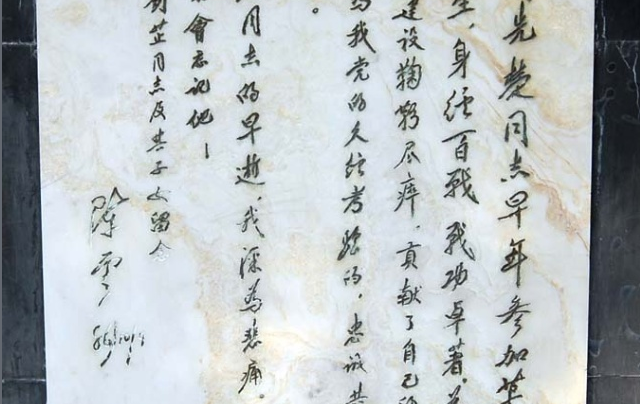 先楚同志早年参加革
身经百战，战功卓著。为
建设鞠躬尽瘁，贡献了自己
我党的久经考验的，忠诚共
。
同志的早逝，我深为悲痛。
會忘记他！
芷同志及其子女留念
陈云